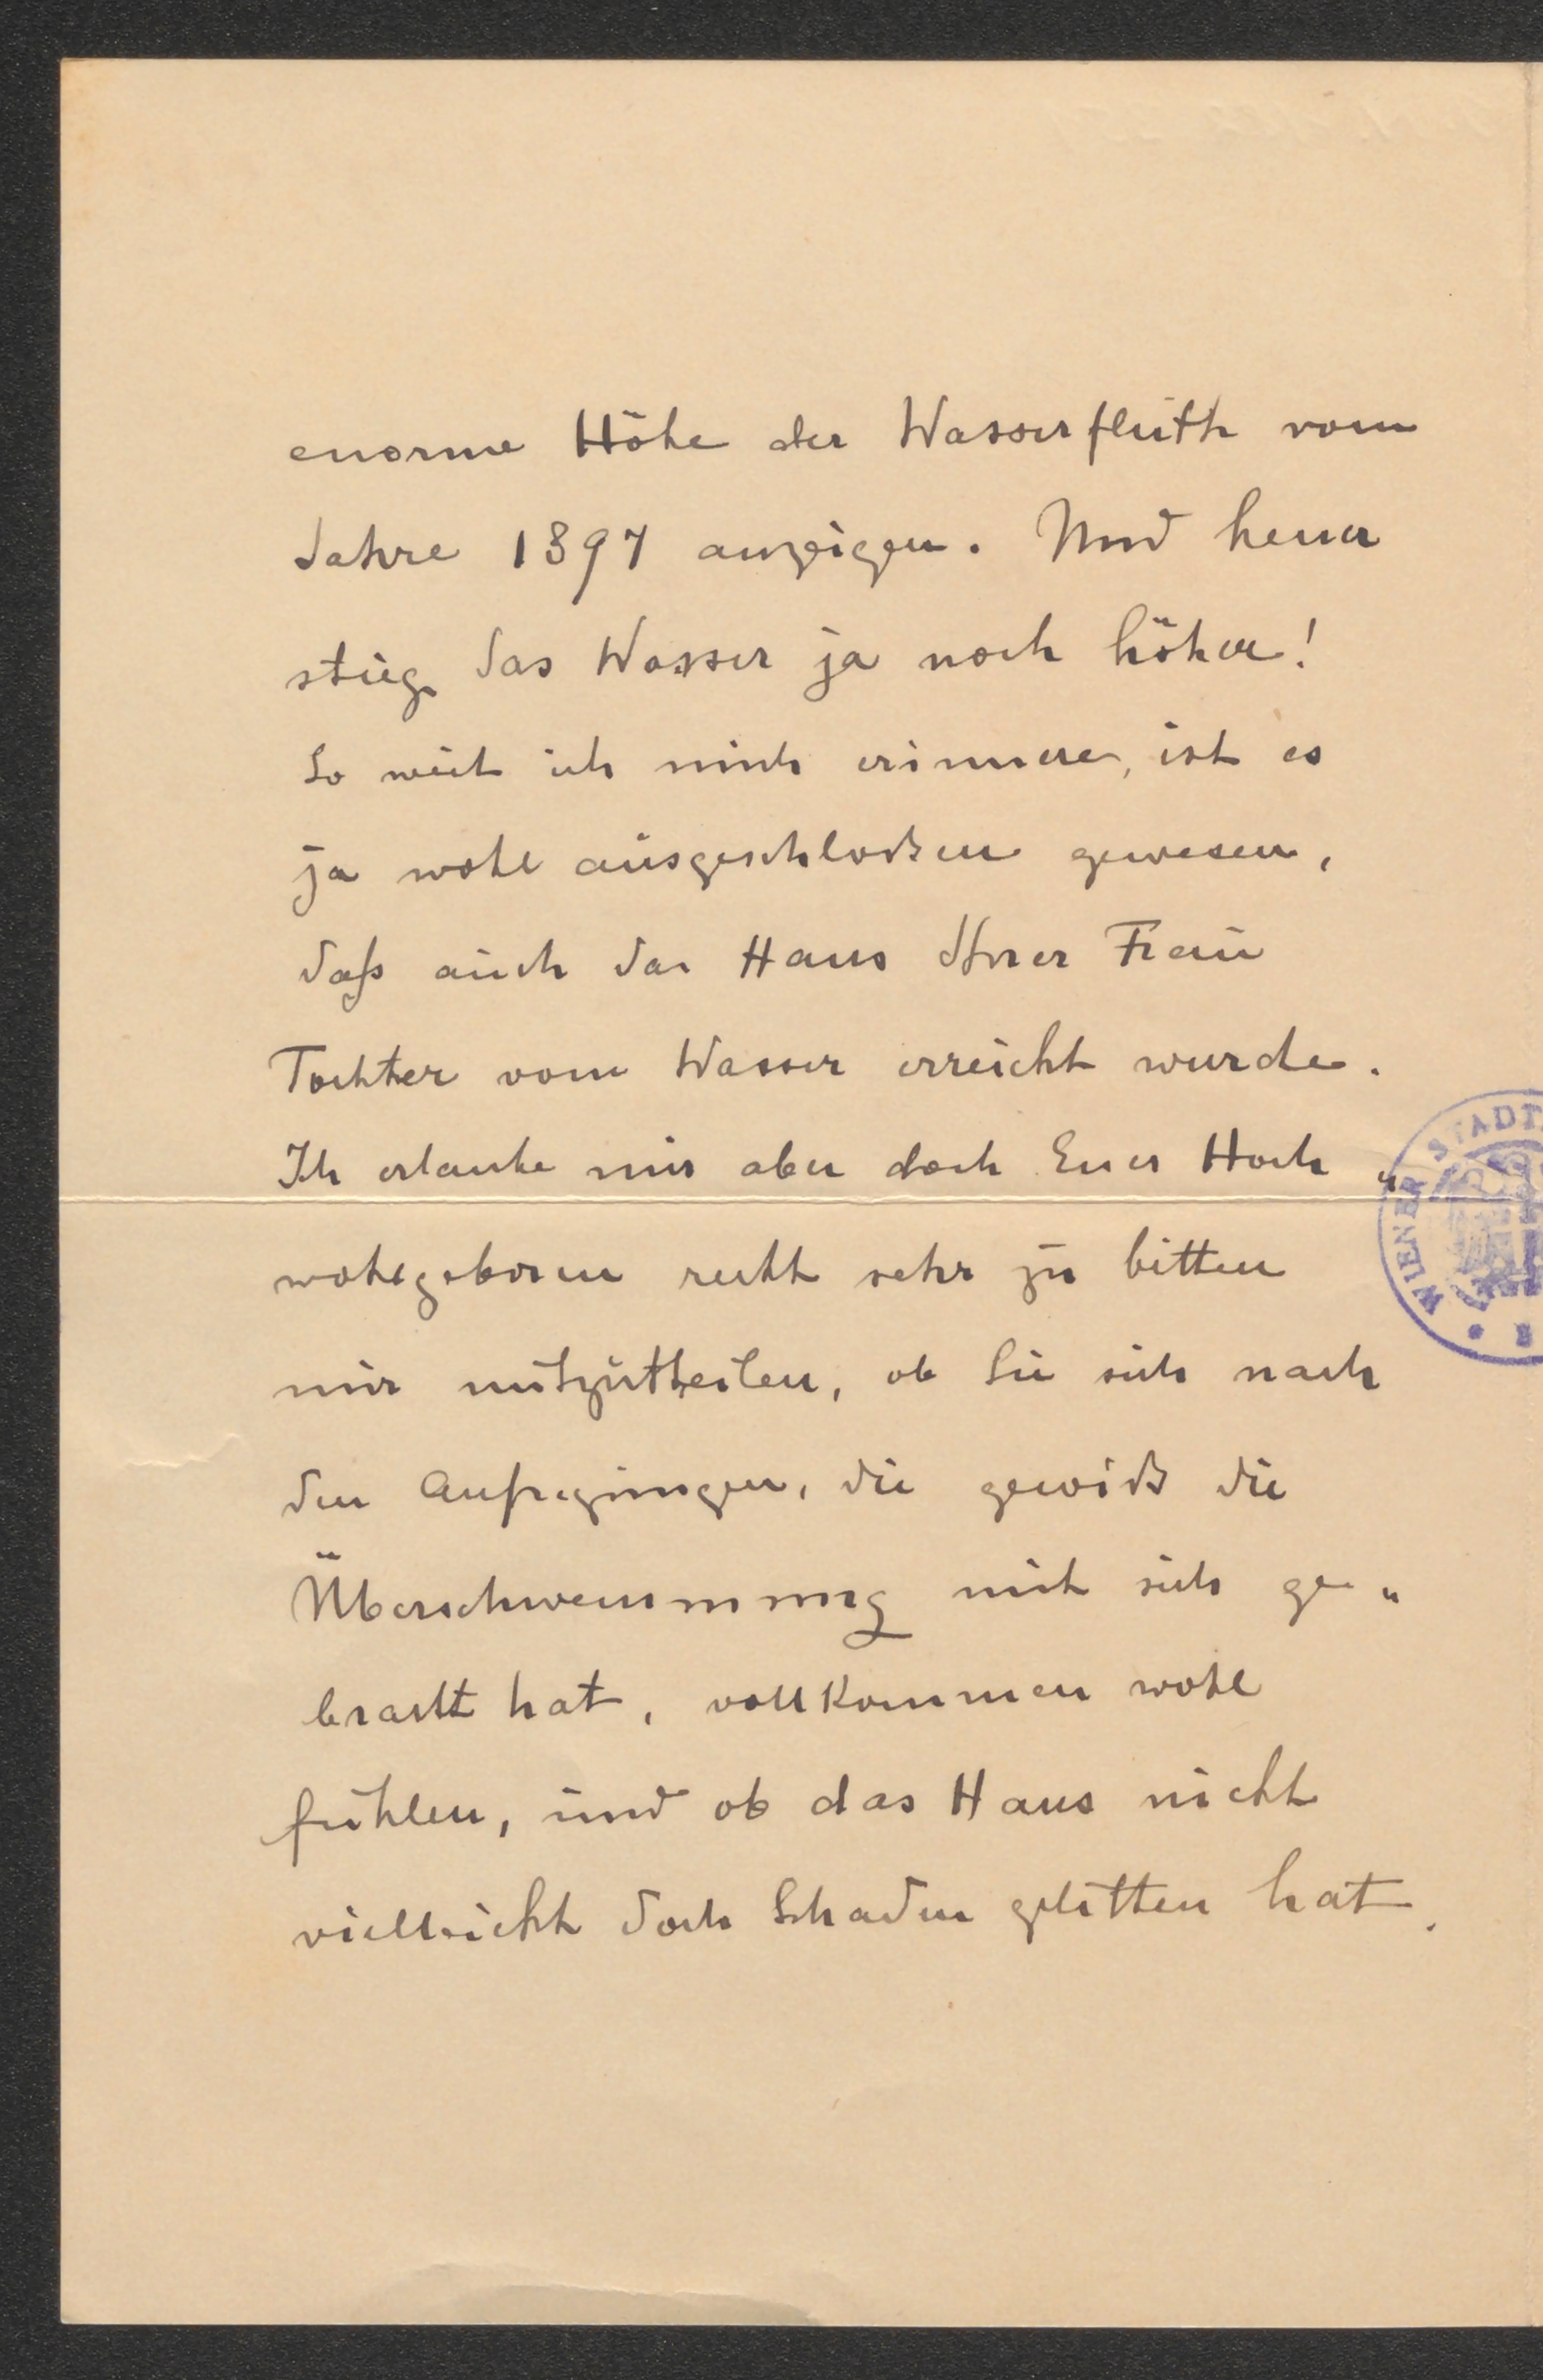 enorme Höhe der Wasserfluth vom
Jahre 1897 anzeigen. Und heuer
stieg das Wasser ja noch höher!
So weit ich mich erinnere, ist es
ja wohl ausgeschloßen gewesen,
daß auch das Haus Ihrer Frau
Tochter vom Wasser erreicht wurde.
Ich erlaube mir aber doch Euer Hoch„
wohlgeboren recht sehr zu bitten
mir mitzutheilen, ob Sie sich nach
den Aufregungen, die gewiß die
Überschwemmung mit sich ge„
bracht hat, vollkommen wohl
fühlen, und ob das Haus nicht
vielleicht doch Schaden gelitten hat.
WIENER STADT